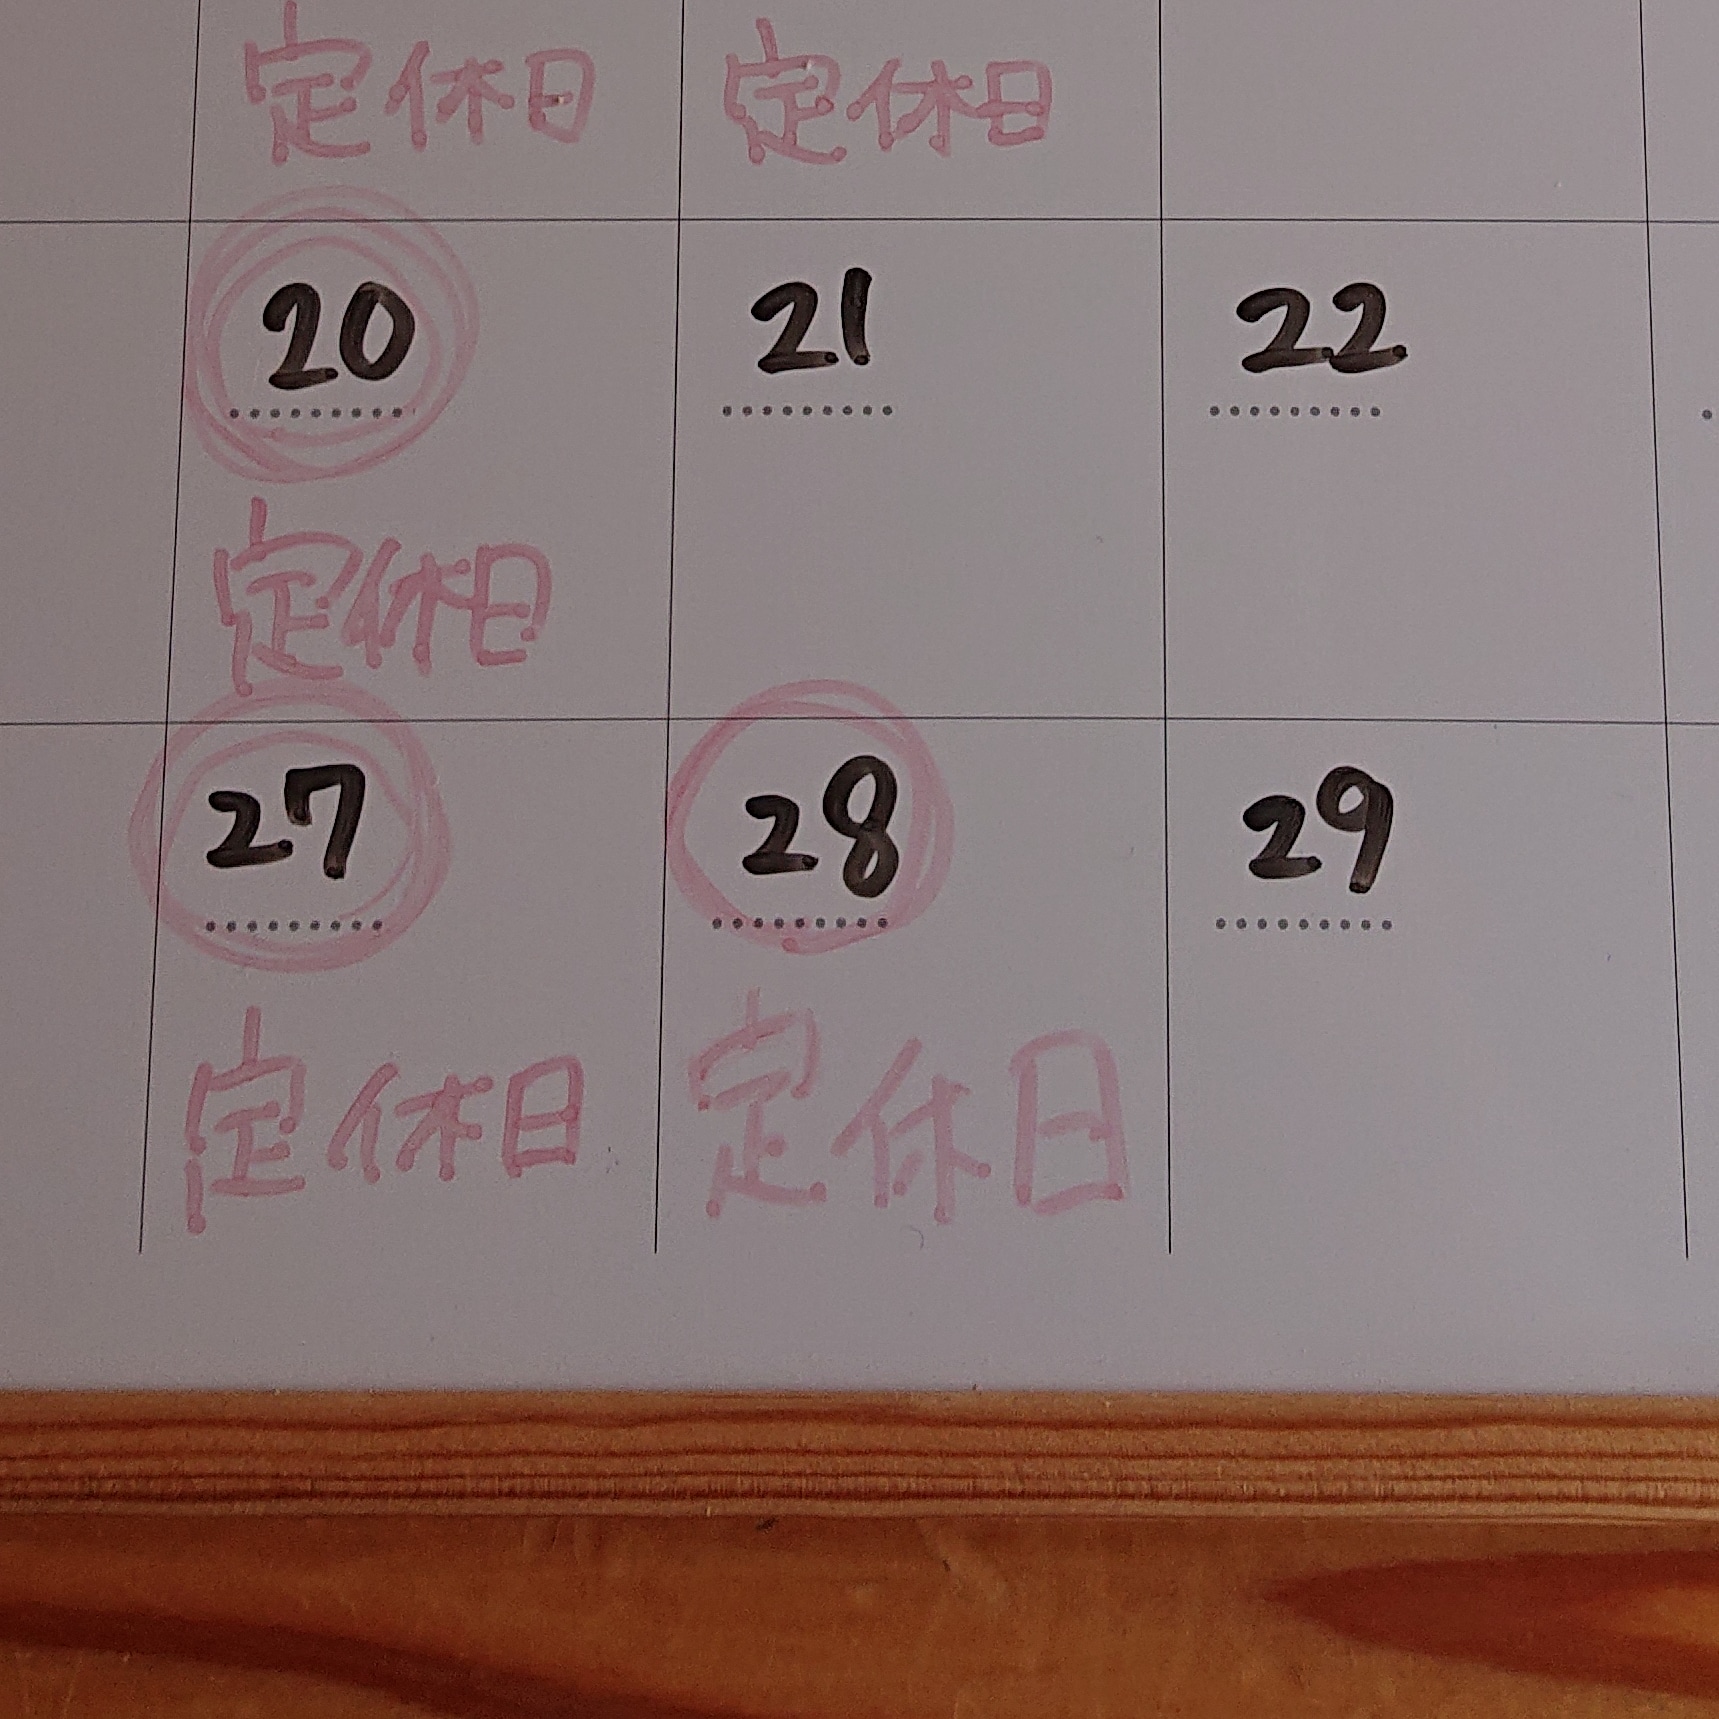 定休日 定休日
20 21 22
定休日
27 28 29
定休日 定休日